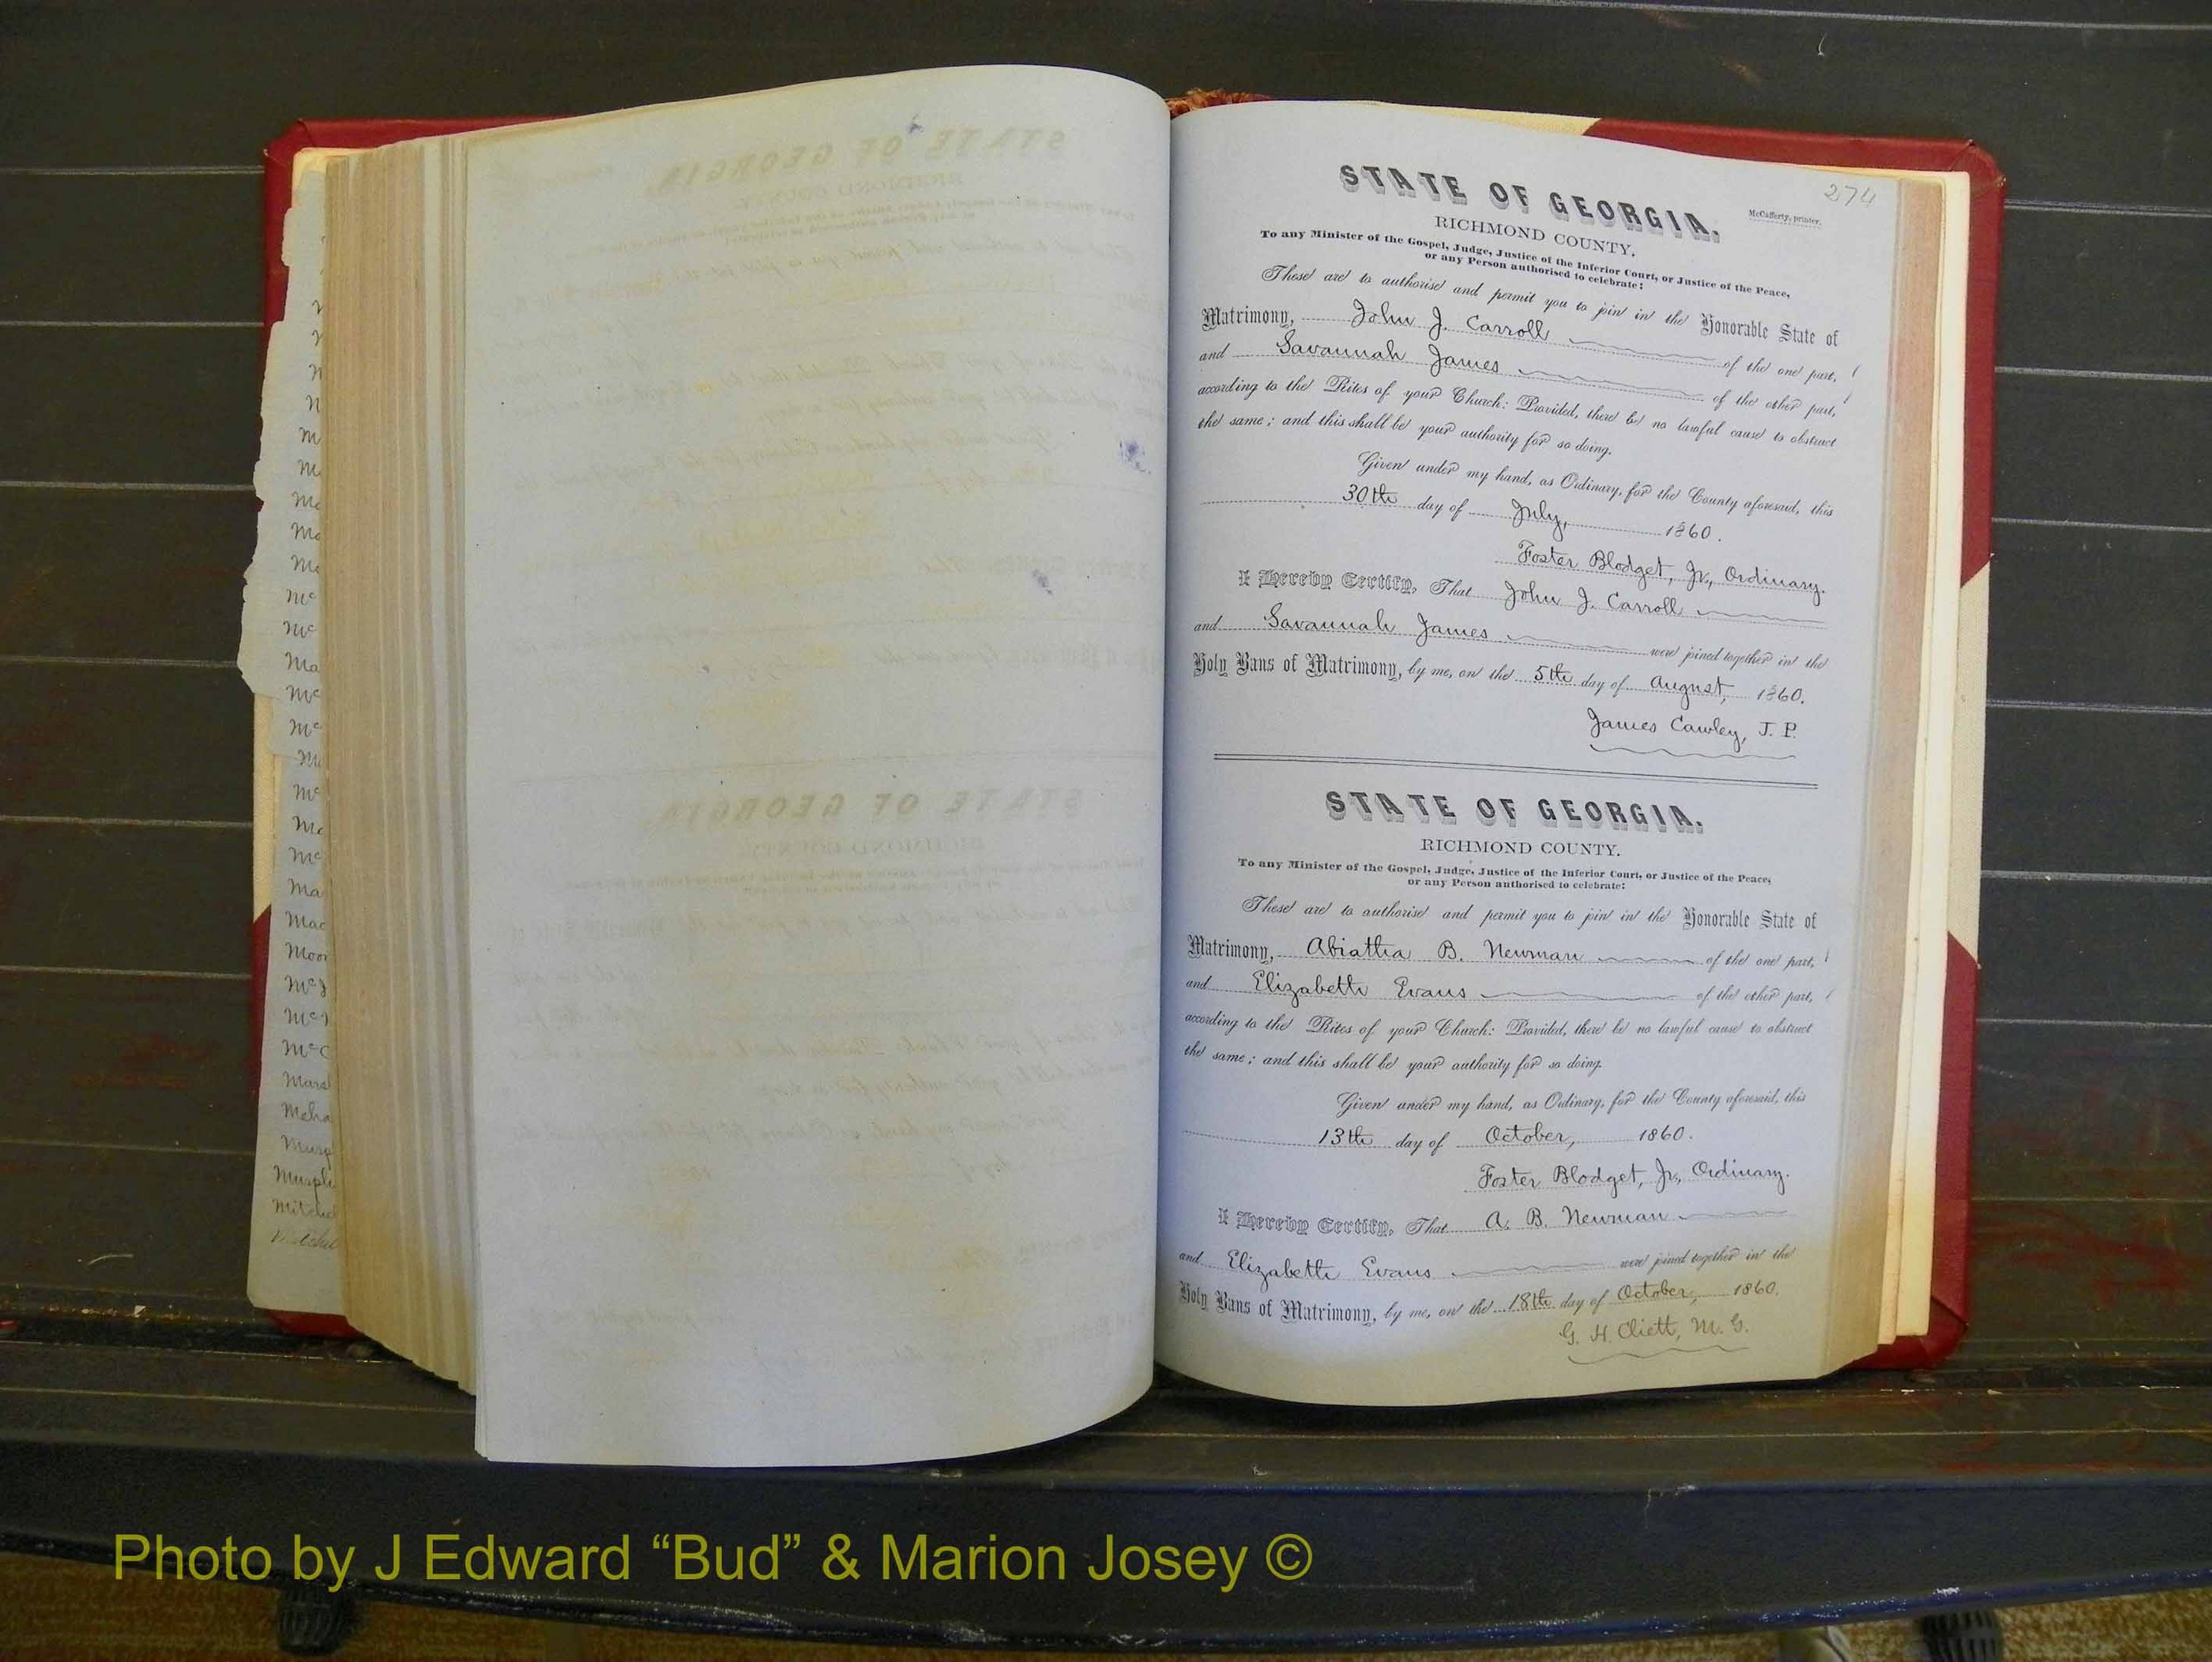 m
m
m
m
Mc
Mc
Mc
Mc
Mc
Ma
Mc
Mc
Mc
Mc
Ma
Mac
Moor
McC
Mars
Meha
Murp
Murph
Mitchel
274
STATE OF GEORGIA.
McCafferty, printer.
RICHMOND COUNTY.
To any Minister of the Gospel, Judge, Justice of the Inferior Court, or Justice of the Peace,
or any Person authorised to celebrate:
These are to authorise and permit you to join in the Honorable State of
Matrimony, John J. Carroll of the one part,
and Savannah James of the other part,
according to the Rites of your Church: Provided, there be no lawful cause to obstruct
the same; and this shall be your authority for so doing.
Given under my hand, as Ordinary, for the County aforesaid, this
30th day of July, 1860.
Foster Blodget, Jr., Ordinary.
I Hereby Certify, That John J. Carroll
and Savannah James were joined together in the
Holy Bans of Matrimony, by me, on the 5th day of August, 1860.
James Cawley, J. P.
STATE OF GEORGIA.
RICHMOND COUNTY.
To any Minister of the Gospel, Judge, Justice of the Inferior Court, or Justice of the Peace,
or any Person authorised to celebrate:
These are to authorise and permit you to join in the Honorable State of
Matrimony, Abiatha B. Newman of the one part,
and Elizabeth Evans of the other part,
according to the Rites of your Church: Provided, there be no lawful cause to obstruct
the same; and this shall be your authority for so doing.
Given under my hand, as Ordinary, for the County aforesaid, this
13th day of October, 1860.
Foster Blodget, Jr., Ordinary.
I Hereby Certify, That A. B. Newman
and Elizabeth Evans were joined together in the
Holy Bans of Matrimony, by me, on the 18th day of October, 1860.
G. H. Cliett, M. G.
Photo by J Edward “Bud” & Marion Josey ©